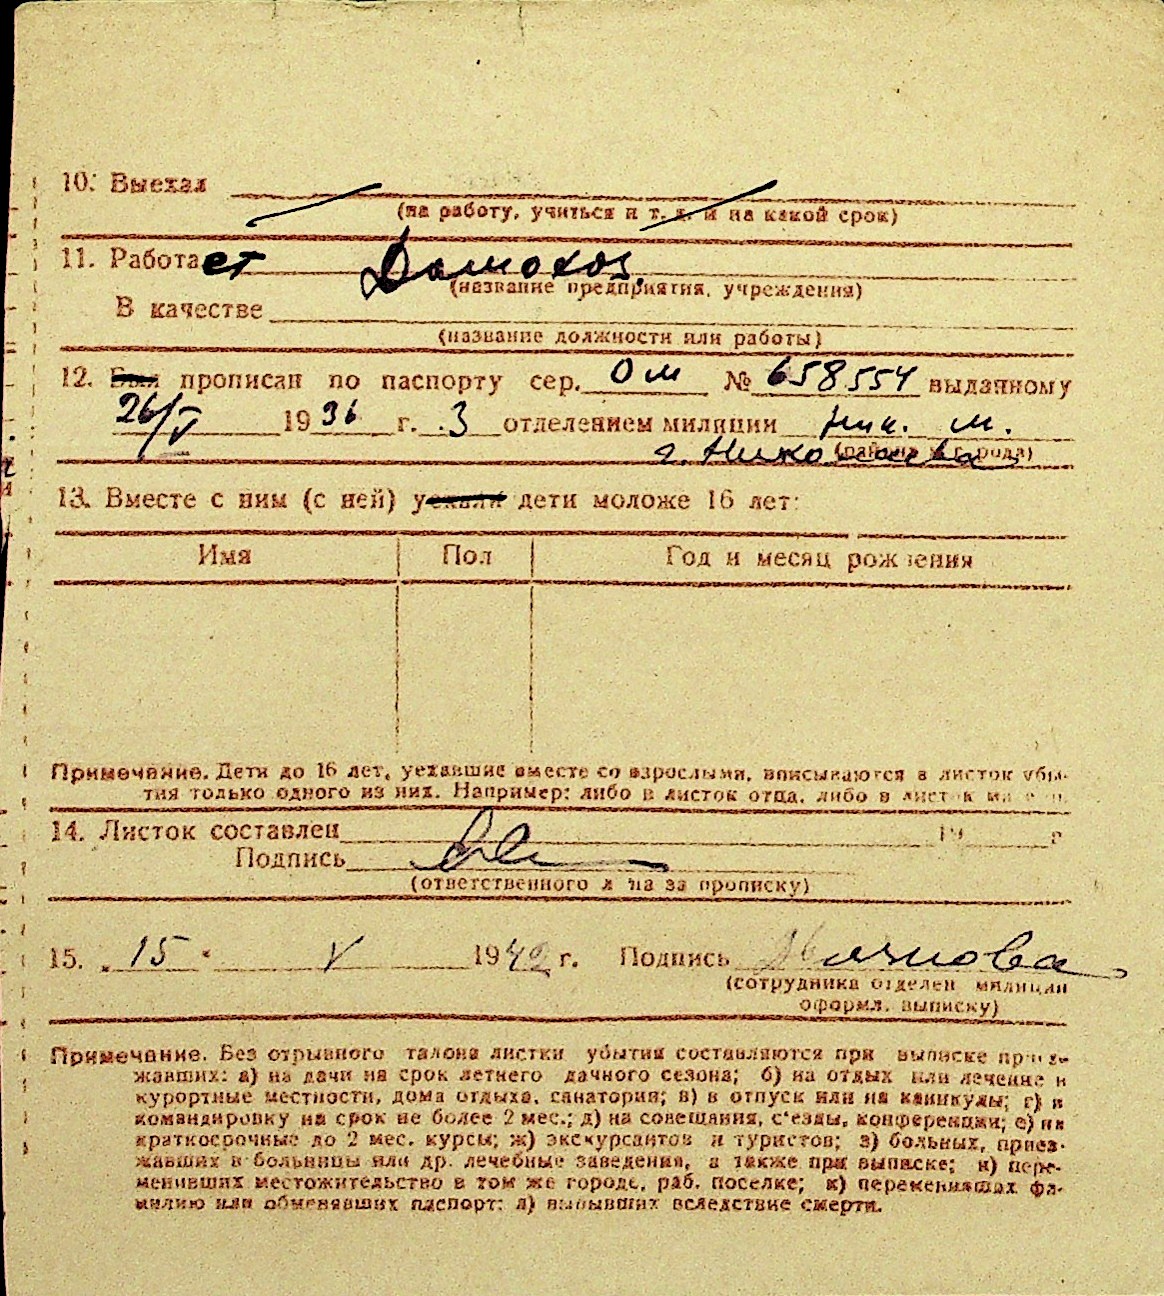 10. Выехал
(на работу, учиться и т. д. и на какой срок)
11. Работает Домохоз.
(название предприятия, учреждения)
В качестве
(название должности или работы)
12. Был прописан по паспорту сер. ОМ № 658554 выданному
26/V 1936 г. 3 отделением милиции Ник. м.
г. Николаева (района и города)
13. Вместе с ним (с ней) уехали дети моложе 16 лет:
Имя Пол Год и месяц рождения
Примечание. Дети до 16 лет, уехавшие вместе со взрослыми, вписываются в листок убы-
тия только одного из них. Например: либо в листок отца, либо в листок матери.
14. Листок составлен 19 г
Подпись
(ответственного лица за прописку)
15. „15“ V 1942 г. Подпись
(сотрудника отделен милиции
оформл. выписку)
Примечание. Без отрывного талона листки убытия составляются при выписке приез-
жавших: а) на дачи на срок летнего дачного сезона; б) на отдых или лечение в
курортные местности, дома отдыха, санатории; в) в отпуск или на каникулы; г) в
командировку на срок не более 2 мес.; д) на совещания, с'езды, конференции; е) на
краткосрочные до 2 мес. курсы; ж) экскурсантов и туристов; з) больных, приез-
жавших в больницы или др. лечебные заведения, а также при выписке; и) пере-
менивших местожительство в том же городе, раб. поселке; к) переменивших фа-
милию или обменявших паспорт; л) выбывших вследствие смерти.